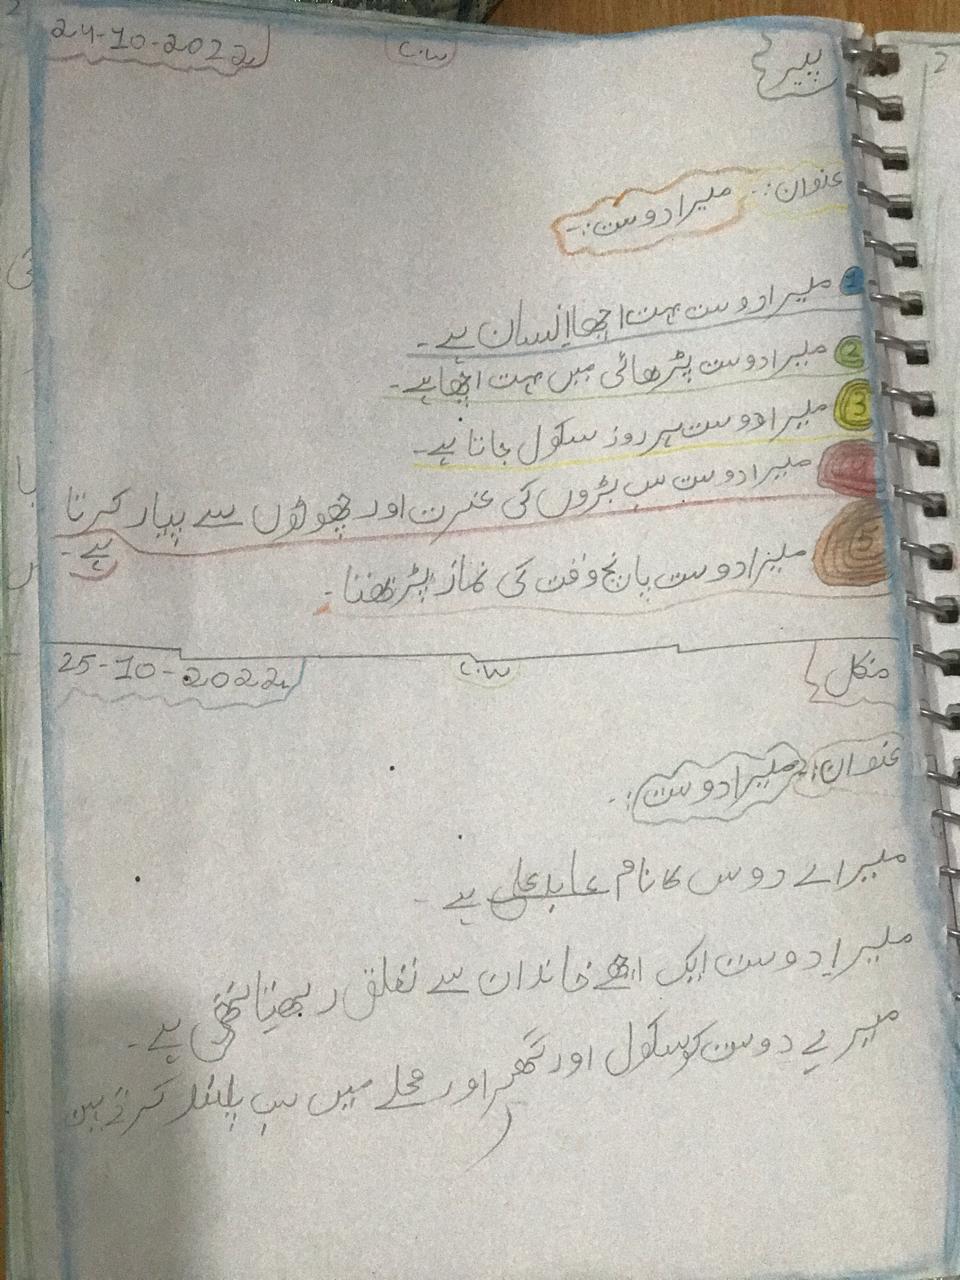 پیر C.W 24-10-2022
عنوان:- میرا دوست:-
1 میرا دوست بہت اچھا انسان ہے۔
2 میرا دوست پڑھائی میں بہت اچھا ہے۔
3 میرا دوست ہر روز سکول جاتا ہے۔
میرا دوست سب بڑوں کی عزت اور چھوٹوں سے پیار کرتا
ہے۔
5 میرا دوست پانچ وقت کی نماز پڑھتا۔
منگل C.W 25-10-2022
عنوان:- میرا دوست:-
میراے دوس کا نام عابد علی ہے۔
میرا دوست ایک اچھے خاندان سے تعلق ہے۔
میرے دوست کو سکول اور گھر اور محلے میں سب پسند کرتے ہیں